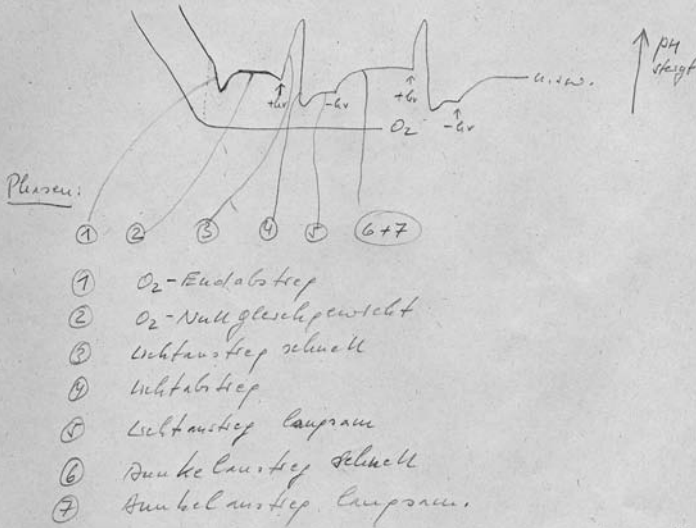 pH
steigt
u.s.w.
+hν
-hν
+hν
-hν
O₂
Phasen:
① ② ③ ④ ⑤ ⑥+7
① O₂-Endabstieg
② O₂-Nullgleichgewicht
③ Lichtanstieg schnell
④ Lichtabstieg
⑤ Lichtanstieg langsam
⑥ Dunkelanstieg schnell
⑦ Dunkelanstieg langsam.